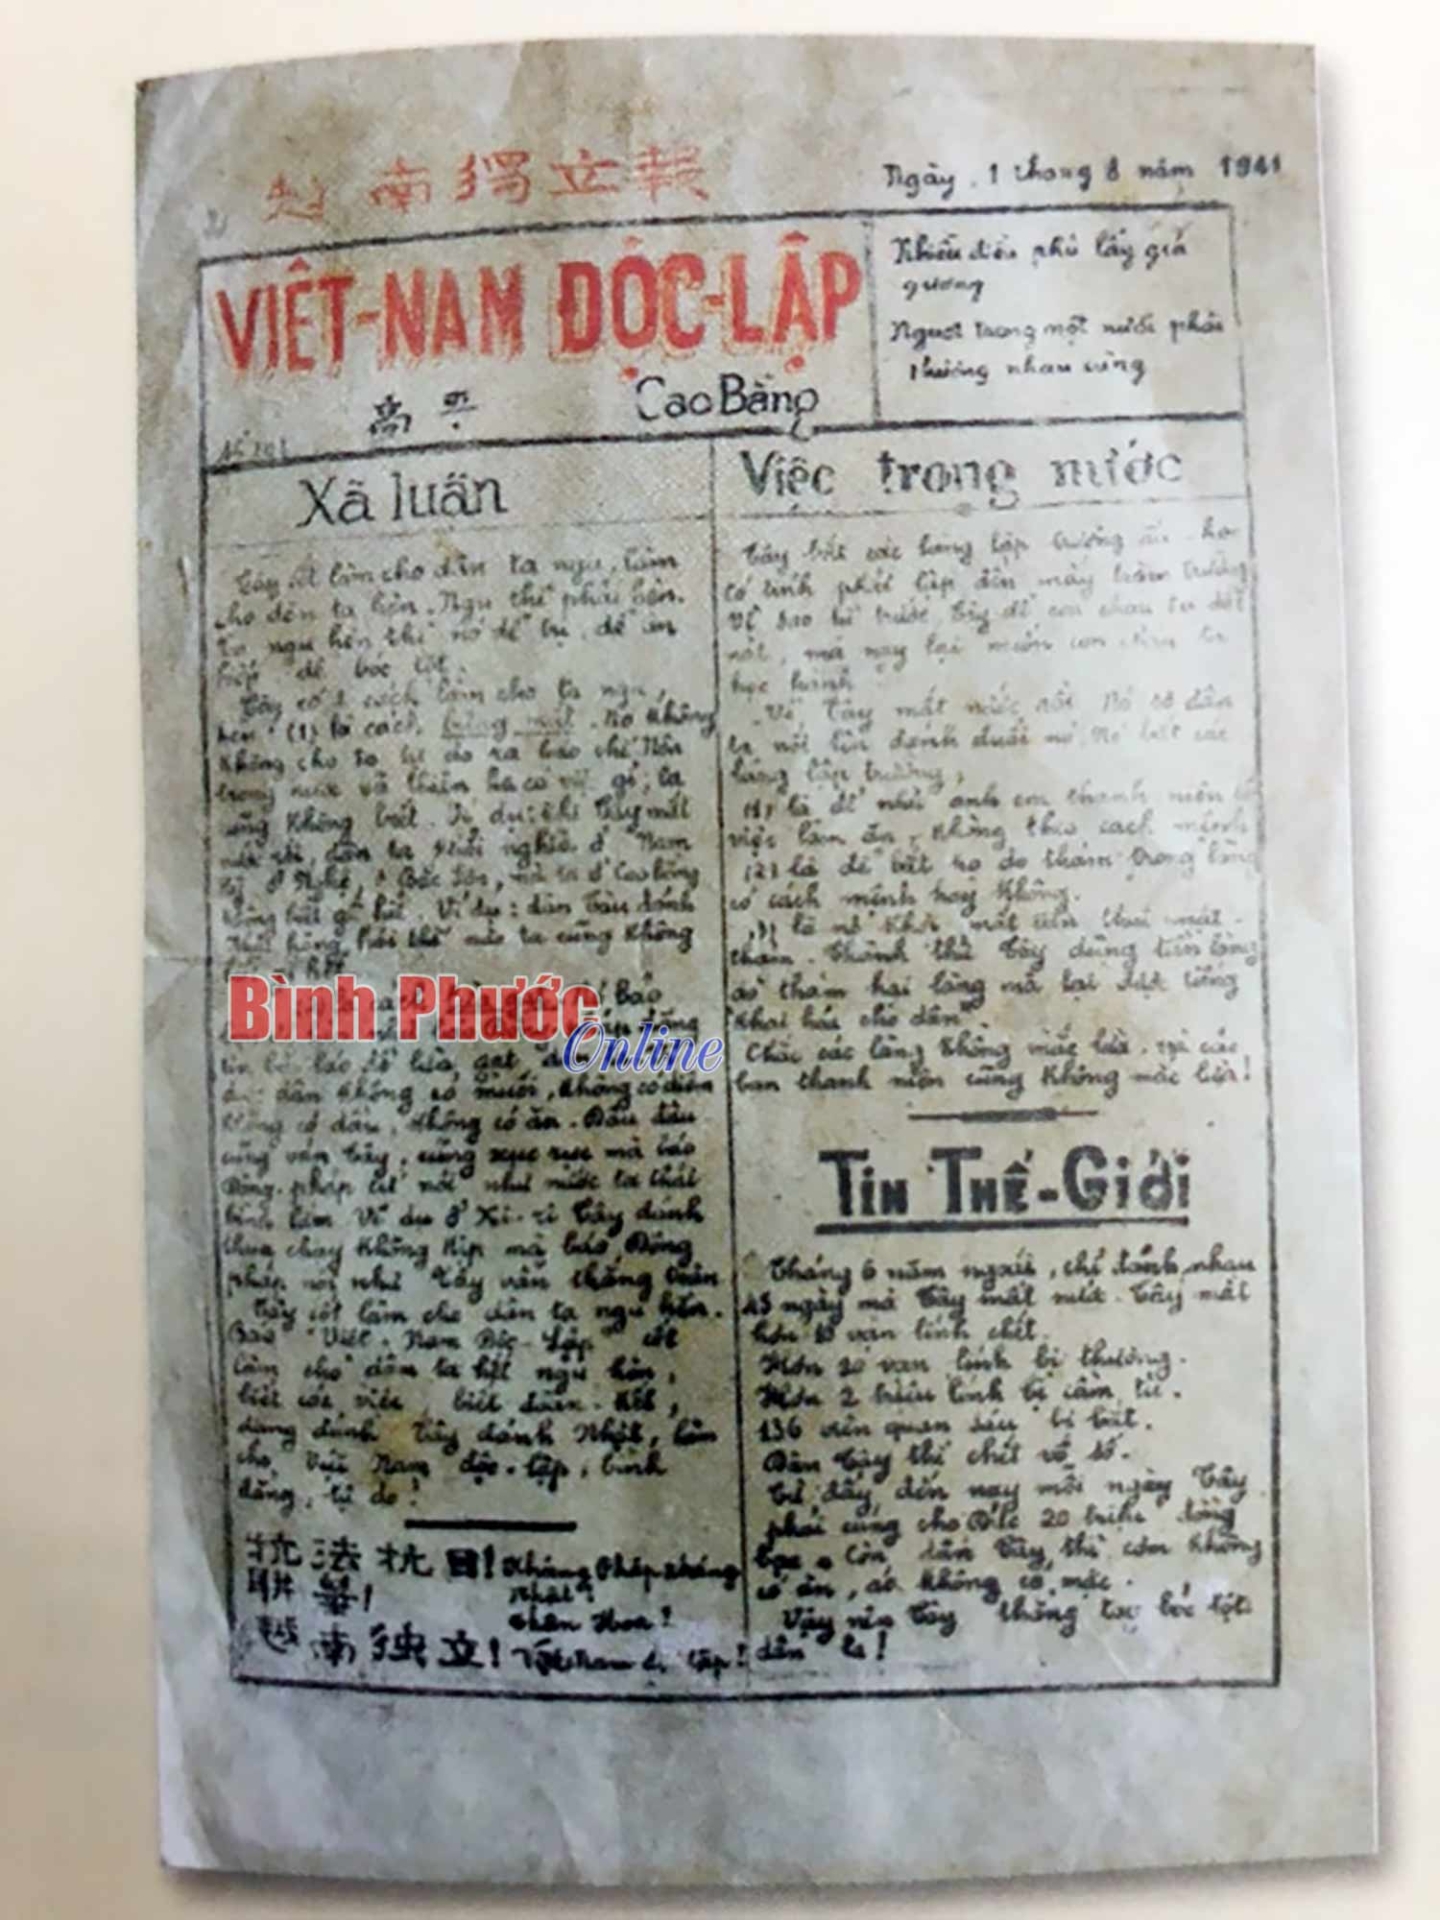 越南獨立報
Ngày 1 tháng 8 năm 1941
VIỆT-NAM ĐỘC-LẬP
Cao Bằng
高平
Nhiễu điều phủ lấy giá
gương
Người trong một nước phải
thương nhau cùng
Xã luận
Tây cốt làm cho dân ta ngu, làm
cho dân ta hèn. Ngu thì phải hèn.
Ta ngu hèn, thì nó dễ trị, dễ ăn
hiếp dễ bóc lột.
Tây có cách làm cho ta ngu,
hèn (1) là cách bưng mắt. Nó không
không cho ta tự do ra báo chí. Nên
trong nước và thiên hạ có việc gì, ta
cũng không biết. Ví dụ: khi Tây mất
nước rồi, dân ta khởi nghĩa ở Nam
kỳ, ở Nghệ, ở Bắc Sơn, mà ta ở Cao Bằng
không biết gì hết. Ví dụ: dân Tàu đánh
Nhật hăng hái thế nào ta cũng không
biết
Báo
Bình Phước
Online
tin bố láo để lừa gạt dân
dân không có muối, không có diêm
không có dầu, không có ăn. Đầu đâu
cũng oán Tây, cũng xục xục mà báo
Đông-pháp cứ nói như nước ta thái
bình lắm. Ví dụ ở Xi-ri Tây đánh
thua chạy không kịp mà báo Đông
pháp nói như Tây vẫn thắng trận
Tây cốt làm cho dân ta ngu hèn.
Báo "Việt-Nam Độc-Lập" cốt
làm cho dân ta hết ngu hèn,
biết các việc, biết đoàn-kết,
đặng đánh Tây đánh Nhật, làm
cho Việt Nam độc-lập, bình
đẳng, tự do!
抗法抗日! Kháng Pháp kháng
Nhật!
聯華! Liên Hoa!
越南独立! Việt Nam độc lập!
Việc trong nước
Tây bắt các làng lập trường ấu-học
có tính phát lập đến mấy trăm trường
Vì sao từ trước, Tây để con cháu ta dốt
nát, mà nay lại muốn con cháu ta
học hành
Vì Tây mất nước rồi. Nó sợ dân
ta nổi lên đánh đuổi nó. Nó bắt các
làng lập trường,
(1) là để nhử anh em thanh niên có
việc làm ăn, không theo cách mệnh
(2) là để bắt họ do thám trong làng
có cách mệnh hay không.
(3) là nó khỏi mất tiền thuê mật-
thám. Thành thử Tây dùng tiền làng
để thám hại làng mà lại được tiếng
"Khai hóa cho dân"
Chắc các làng không mắc lừa, và các
bạn thanh niên cũng không mắc lừa!
TIN THẾ-GIỚI
Tháng 6 năm ngoái, chỉ đánh nhau
45 ngày mà Tây mất nước. Tây mất
hơn 10 vạn lính chết.
Hơn 20 vạn lính bị thương.
Hơn 2 triệu lính bị cầm tù.
136 viên quan sáu bị bắt.
Dân Tây thì chết vô số.
Từ đấy đến nay mỗi ngày Tây
phải cúng cho Đức 20 triệu đồng
bạc. Còn dân Tây thì cơm không
có ăn, áo không có mặc.
Vậy nên Tây thẳng tay bóc lột
dân ta!